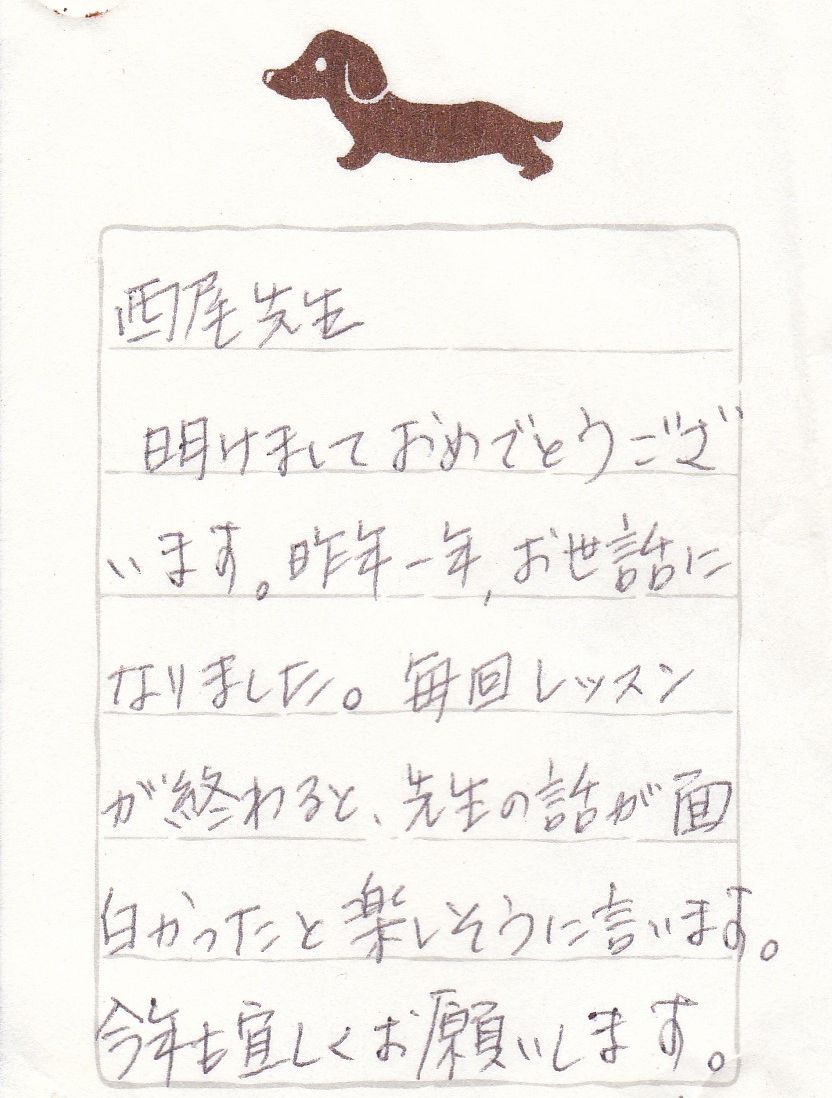 西尾先生
明けましておめでとうござ
います。昨年一年,お世話に
なりました。毎回レッスン
が終わると、先生の話が面
白かったと楽しそうに言います。
今年も宜しくお願いします。